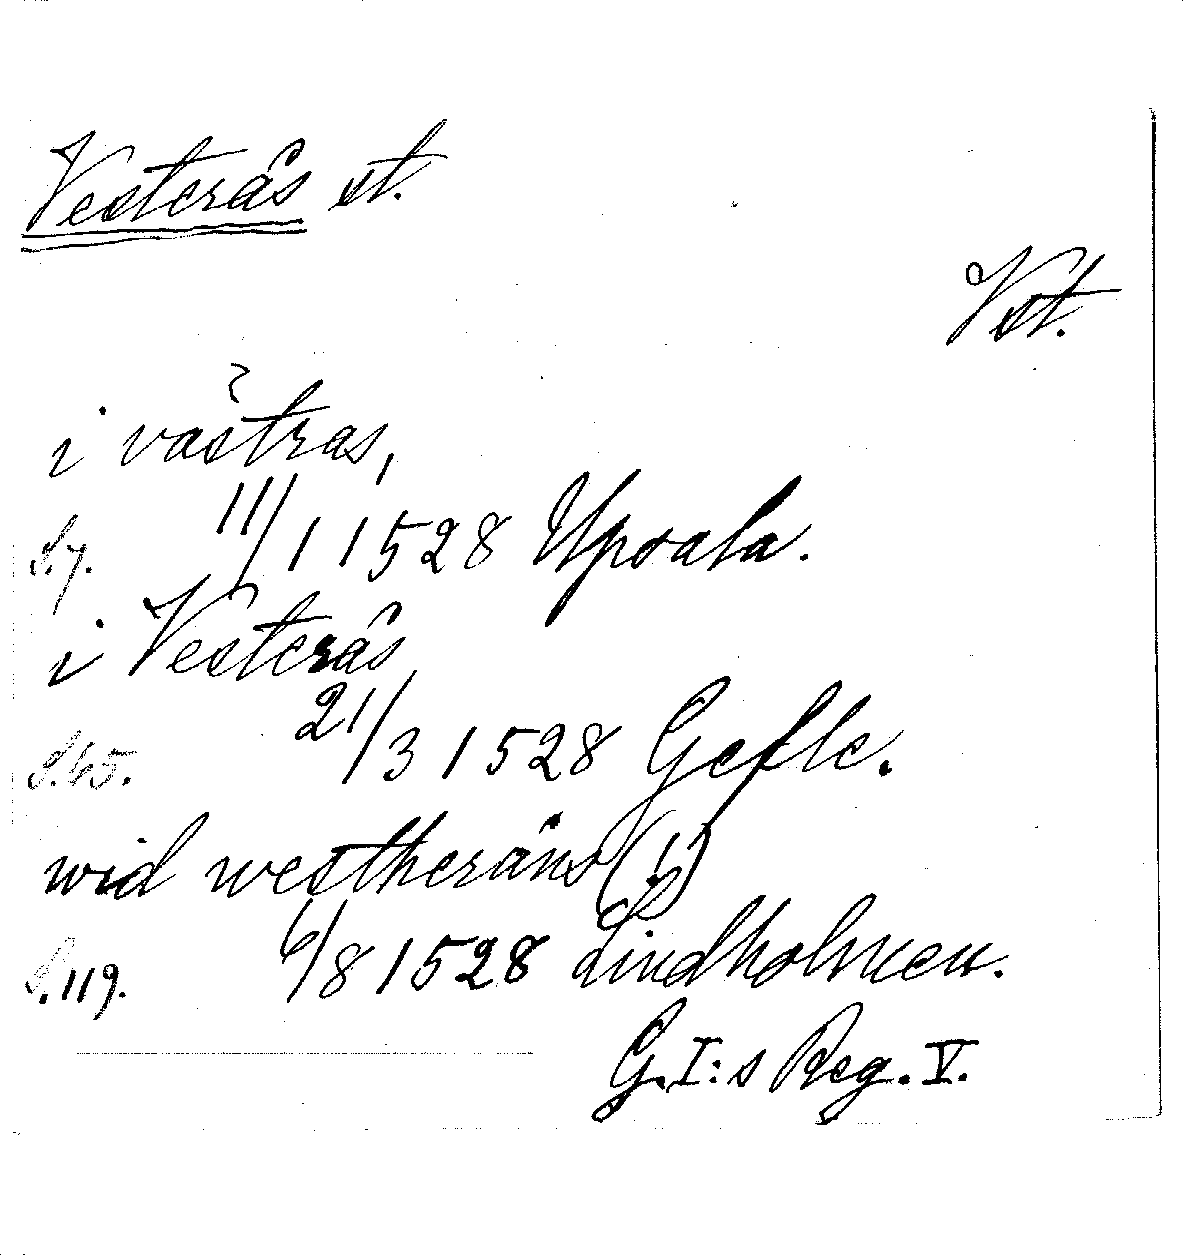 Vesterås st.
Vst.
i västras,
S.7. 11/1 1528 Upsala.
i Vesterås
S.45. 21/3 1528 Gefle.
wid westheräns (!)
S.119. 6/8 1528 Lindholmen.
G.I:s Reg. V.